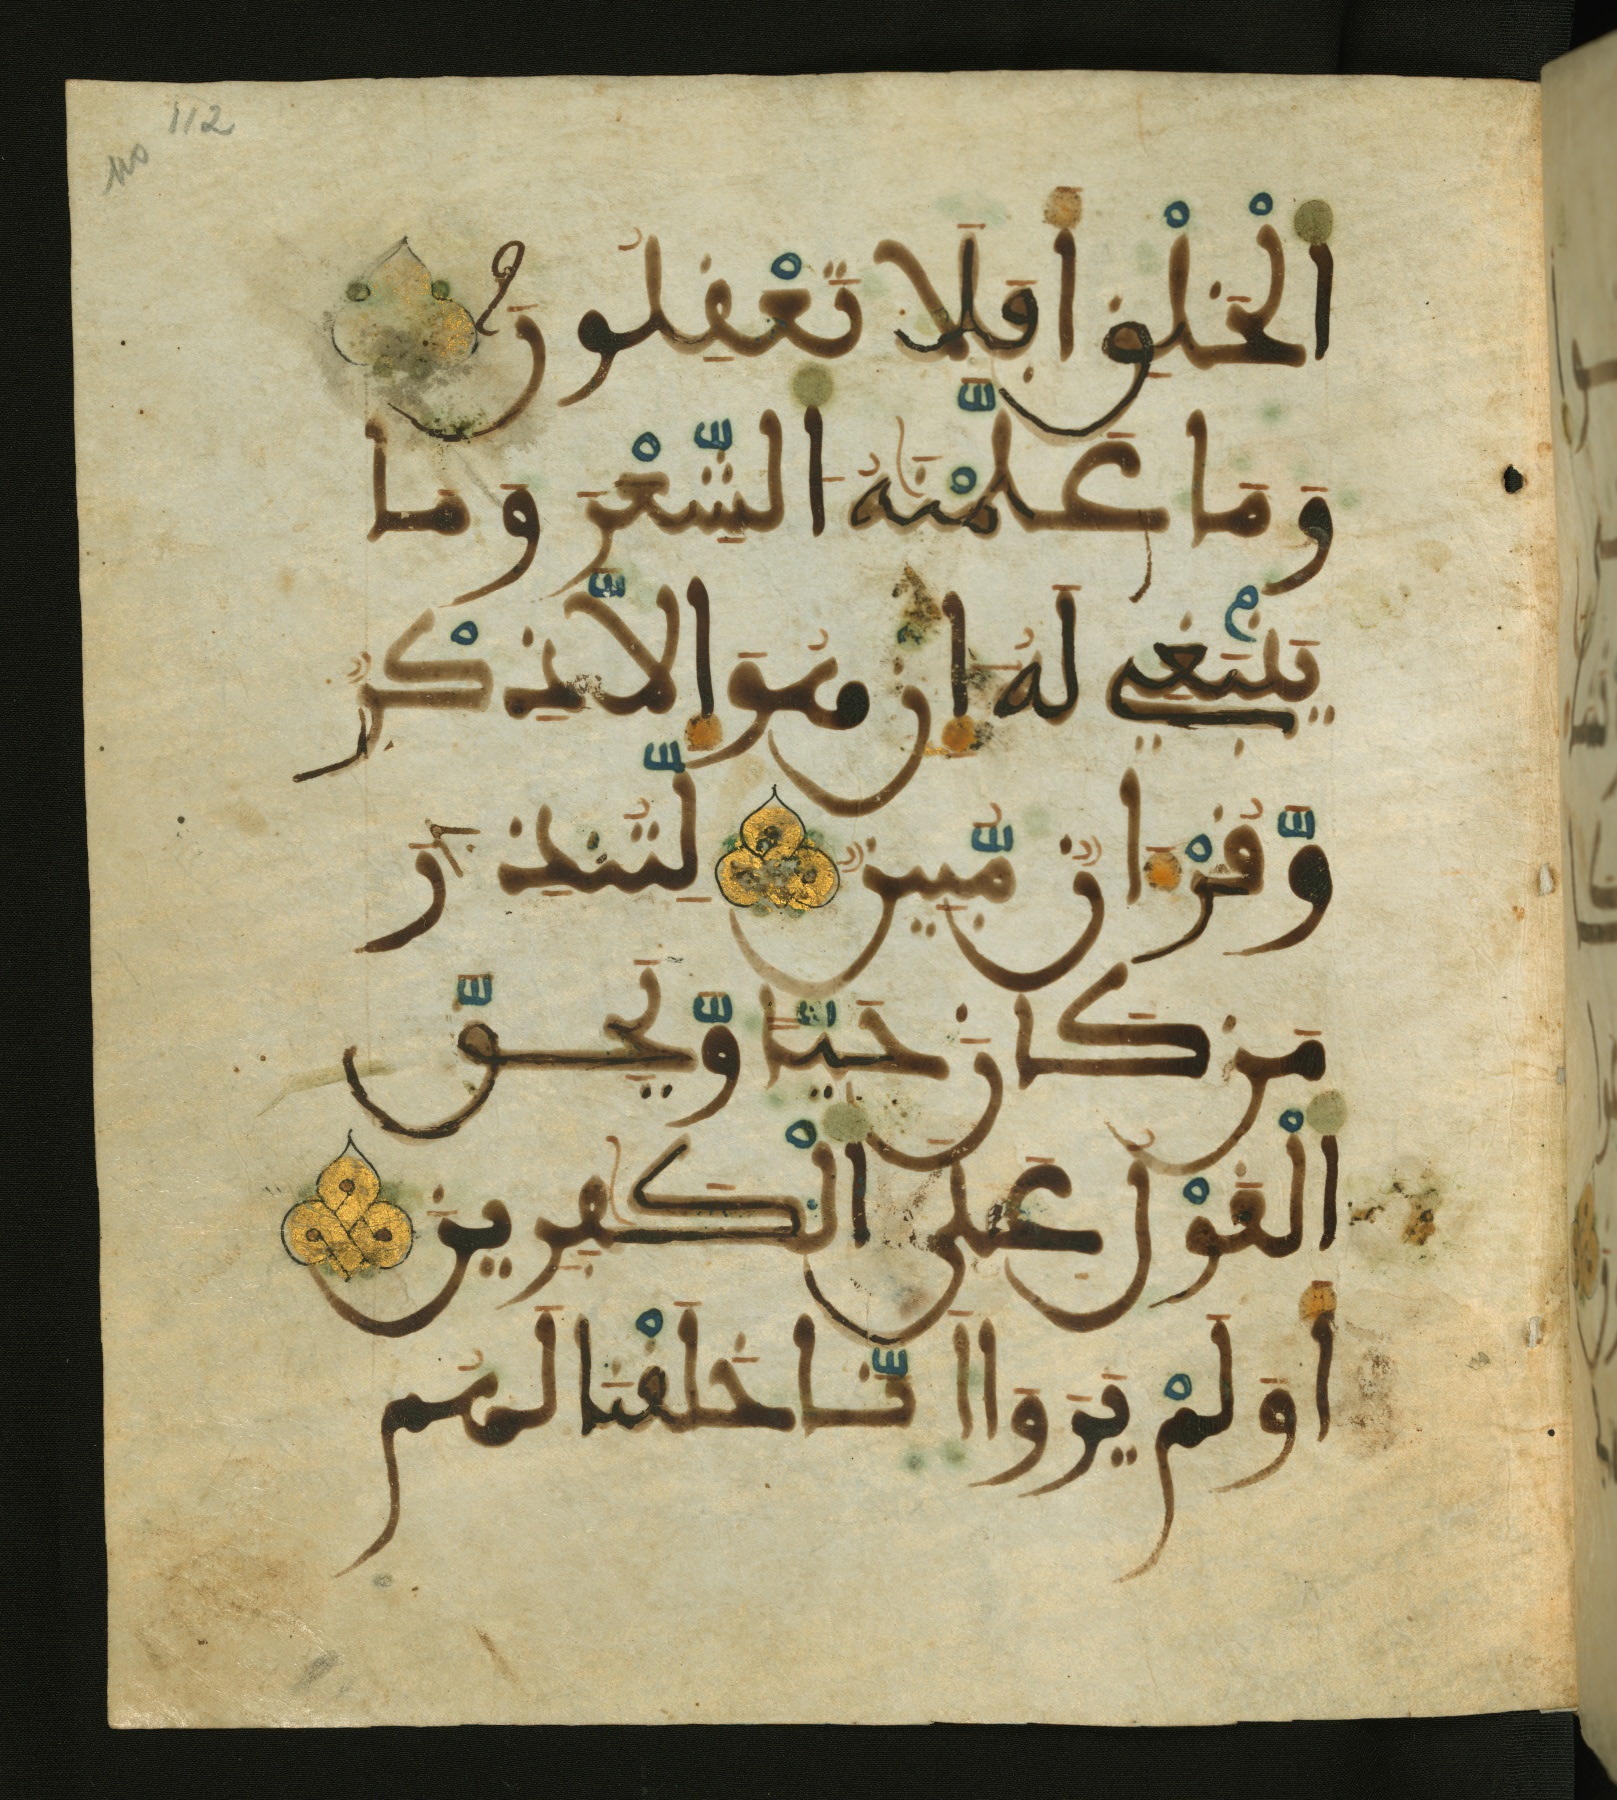 112
no
اَ۬لْخَلْقِ أَفَلَا تَعْقِلُونَ
وَمَا عَلَّمْنَٰهُ اُ۬لشِّعْرَ وَمَا
يَنۢبَغِي لَهُۥ إِنْ هُوَ إِلَّا ذِكْرٞ
وَّقُرْءَانٞ مُّبِينٞ لِّتُنذِرَ
مَن كَانَ حَيّاٗ وَّيَحِقَّ
اَ۬لْقَوْلُ عَلَى اَ۬لْكَٰفِرِينَ
أَوَلَمْ يَرَوَاْ انَّا خَلَقْنَا لَهُم